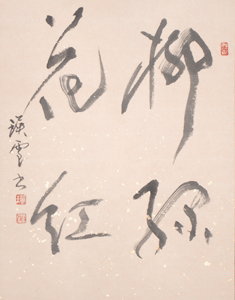 柳緑
花紅
雲書